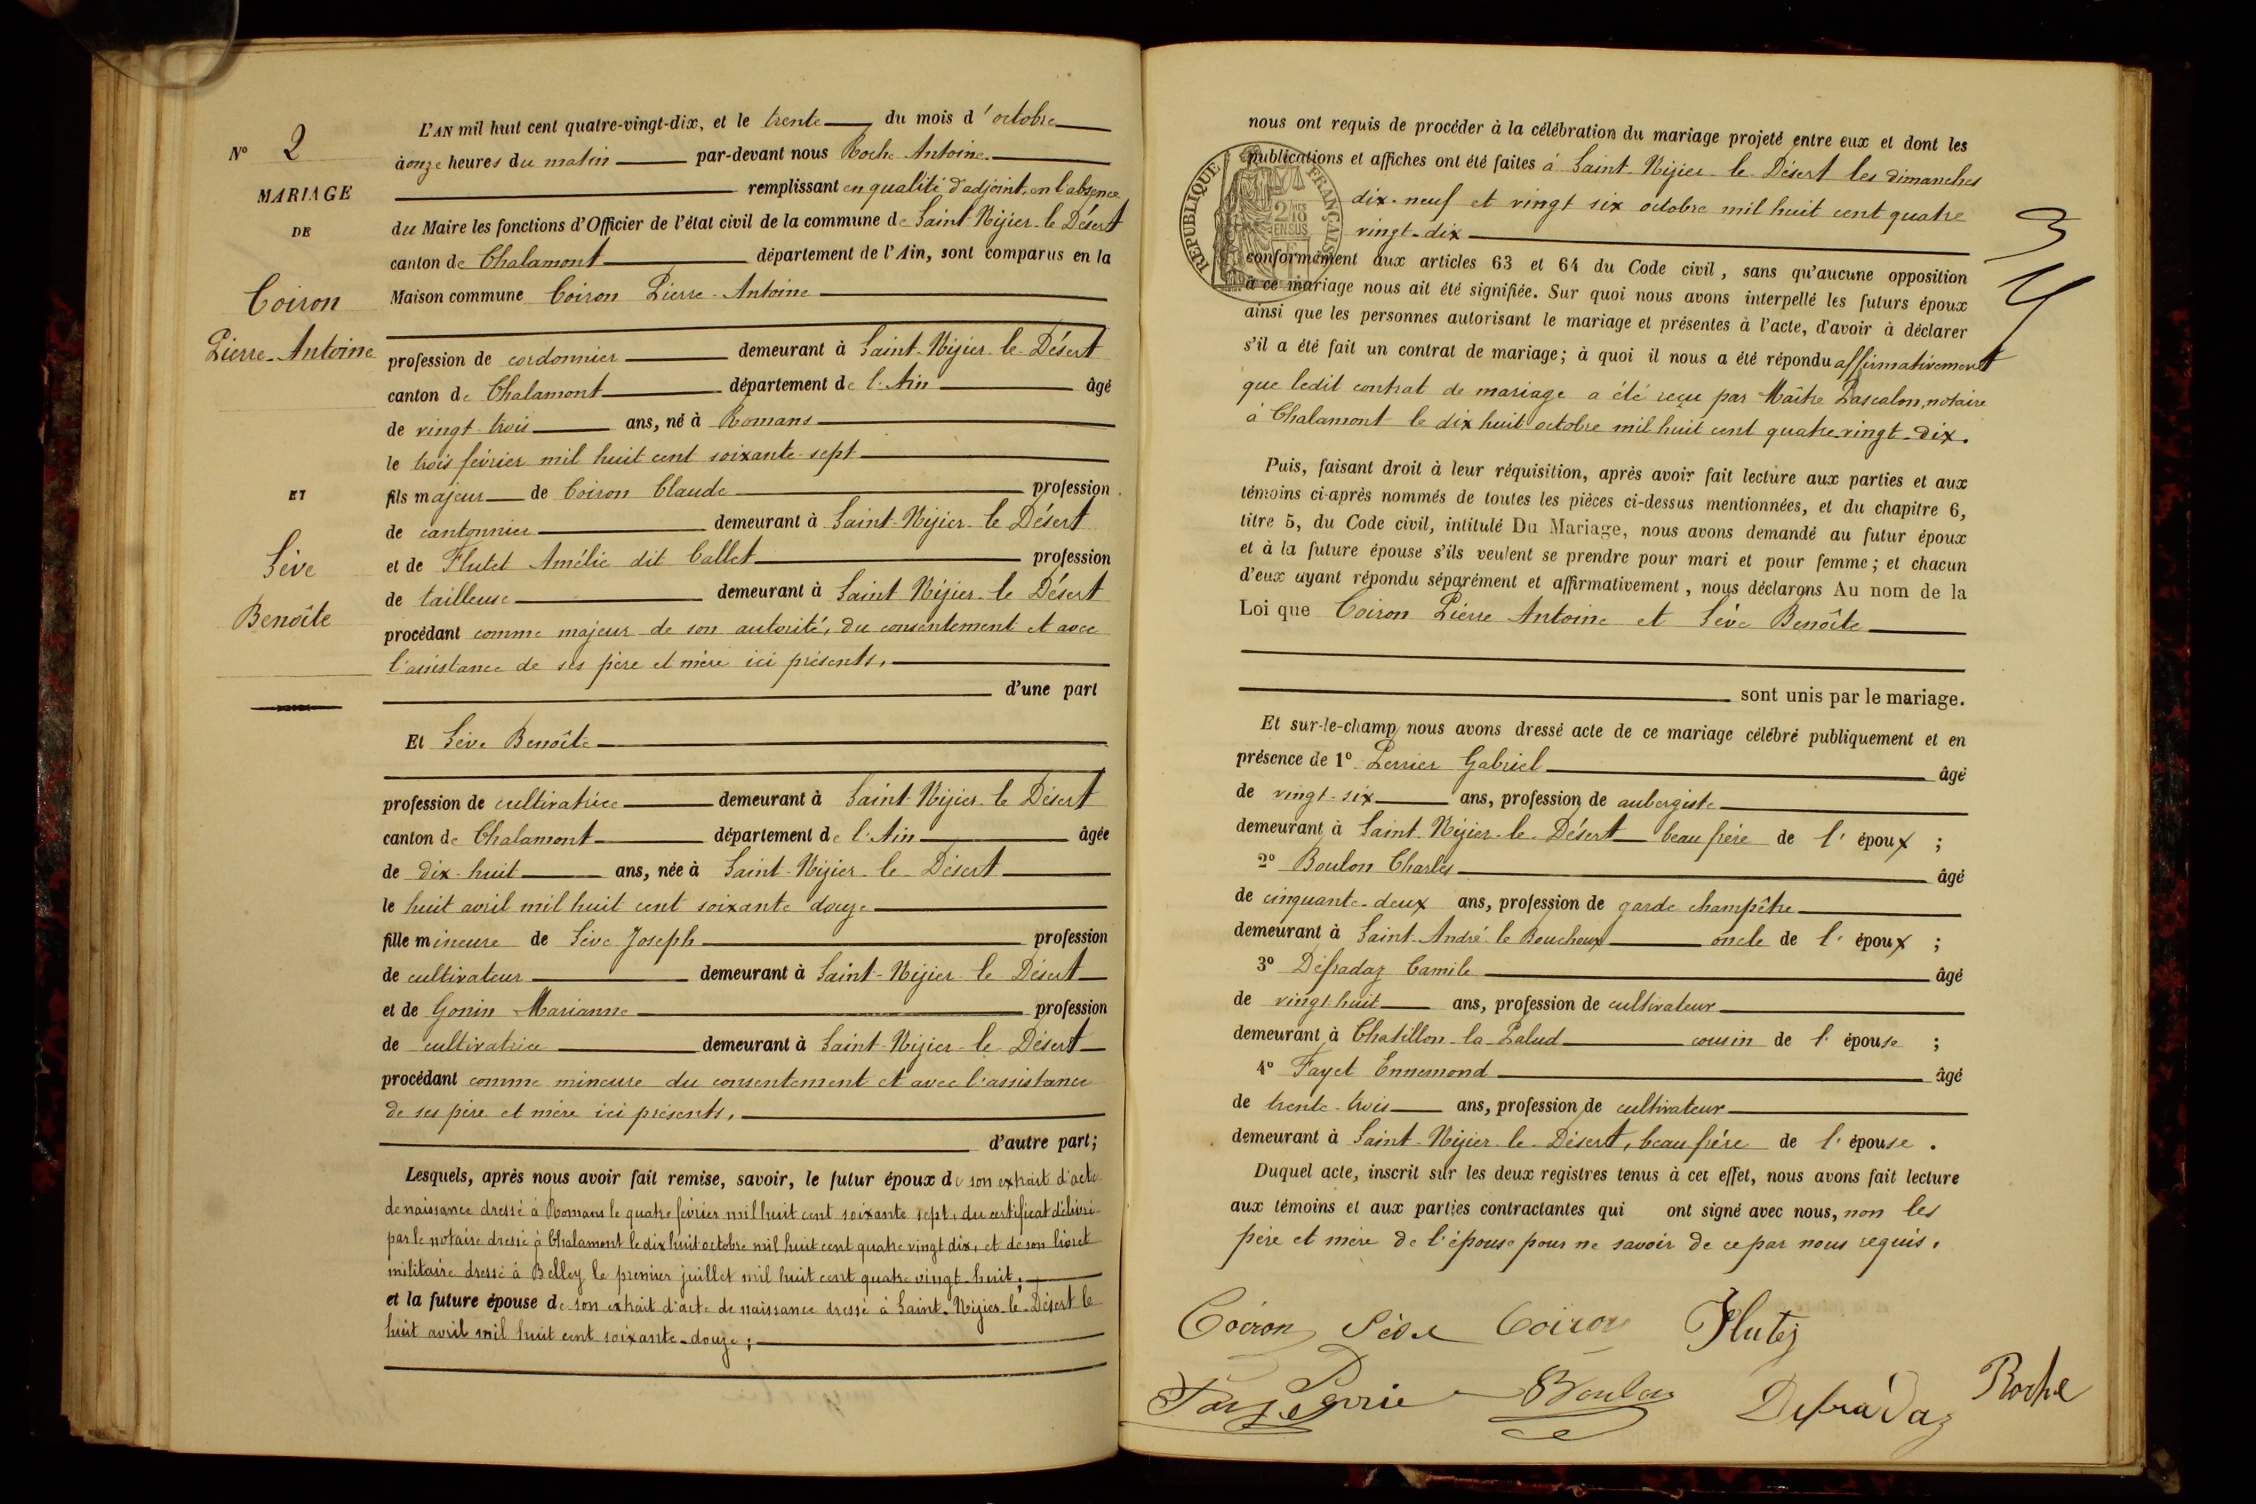 N° 2
MARIAGE
DE
Coiron
Pierre-Antoine
ET
Sève
Benoîte
L'AN mil huit cent quatre-vingt-dix, et le trente du mois d'octobre
à onze heures du matin par-devant nous Roche Antoine.
remplissant en qualité d'adjoint, en l'absence
du Maire les fonctions d'Officier de l'état civil de la commune de Saint-Nizier-le-Désert
canton de Chalamont département de l'Ain, sont comparus en la
Maison commune Coiron Pierre-Antoine
profession de cordonnier demeurant à Saint-Nizier-le-Désert
canton de Chalamont département de l'Ain âgé
de vingt-trois ans, né à Romans
le trois février mil huit cent soixante-sept
fils majeur de Coiron Claude profession
de cantonnier demeurant à Saint-Nizier-le Désert
et de Flutet Amélie dit Callet profession
de tailleuse demeurant à Saint Nizier-le Désert
procédant comme majeur de son autorité, du consentement et avec
l'assistance de ses père et mère ici présents,
d'une part
Et Sève Benoîte
profession de cultivatrice demeurant à Saint-Nizier-le Désert
canton de Chalamont département de l'Ain âgée
de dix-huit ans, née à Saint-Nizier-le-Désert
le huit avril mil huit cent soixante douze
fille mineure de Sève Joseph profession
de cultivateur demeurant à Saint-Nizier-le Désert
et de Gonin Marianne profession
de cultivatrice demeurant à Saint-Nizier-le-Désert
procédant comme mineure du consentement et avec l'assistance
de ses père et mère ici présents,
d'autre part;
Lesquels, après nous avoir fait remise, savoir, le futur époux de son extrait d'acte
de naissance dressé à Romans le quatre février mil huit cent soixante sept, du certificat délivré
par le notaire dressé à Chalamont le dix huit octobre mil huit cent quatre vingt dix, et de son livret
militaire dressé à Belley le premier juillet mil huit cent quatre vingt-huit;
et la future épouse de son extrait d'acte de naissance dressé à Saint-Nizier-le-Désert le
huit avril mil huit cent soixante-douze;
nous ont requis de procéder à la célébration du mariage projeté entre eux et dont les
publications et affiches ont été faites à Saint-Nizier-le-Désert les dimanches
dix-neuf et vingt six octobre mil huit cent quatre
vingt-dix
RÉPUBLIQUE FRANÇAISE
conformément aux articles 63 et 64 du Code civil, sans qu'aucune opposition
à ce mariage nous ait été signifiée. Sur quoi nous avons interpellé les futurs époux
ainsi que les personnes autorisant le mariage et présentes à l'acte, d'avoir à déclarer
s'il a été fait un contrat de mariage; à quoi il nous a été répondu affirmativement
que ledit contrat de mariage a été reçu par Maître Pascalon, notaire
à Chalamont le dix huit octobre mil huit cent quatre-vingt-dix.
Puis, faisant droit à leur réquisition, après avoir fait lecture aux parties et aux
témoins ci-après nommés de toutes les pièces ci-dessus mentionnées, et du chapitre 6,
titre 5, du Code civil, intitulé Du Mariage, nous avons demandé au futur époux
et à la future épouse s'ils veulent se prendre pour mari et pour femme; et chacun
d'eux ayant répondu séparément et affirmativement, nous déclarons Au nom de la
Loi que Coiron Pierre Antoine et Sève Benoîte
sont unis par le mariage.
Et sur-le-champ nous avons dressé acte de ce mariage célébré publiquement et en
présence de 1° Perrier Gabriel âgé
de vingt-six ans, profession de aubergiste
demeurant à Saint-Nizier-le-Désert beau frère de l'époux;
2° Boulon Charles âgé
de cinquante-deux ans, profession de garde champêtre
demeurant à Saint-André le Boucheux oncle de l'époux;
3° Défradaz Camile âgé
de vingt-huit ans, profession de cultivateur
demeurant à Chatillon-la-Palud cousin de l'épouse;
4° Fayet Ennemond âgé
de trente-trois ans, profession de cultivateur
demeurant à Saint-Nizier-le-Désert, beau frère de l'épouse.
Duquel acte, inscrit sur les deux registres tenus à cet effet, nous avons fait lecture
aux témoins et aux parties contractantes qui ont signé avec nous, non les
père et mère de l'épouse pour ne savoir de ce par nous requis.
Coiron Sève Coiron Flutet
Perrier Boulon Defradaz Roche